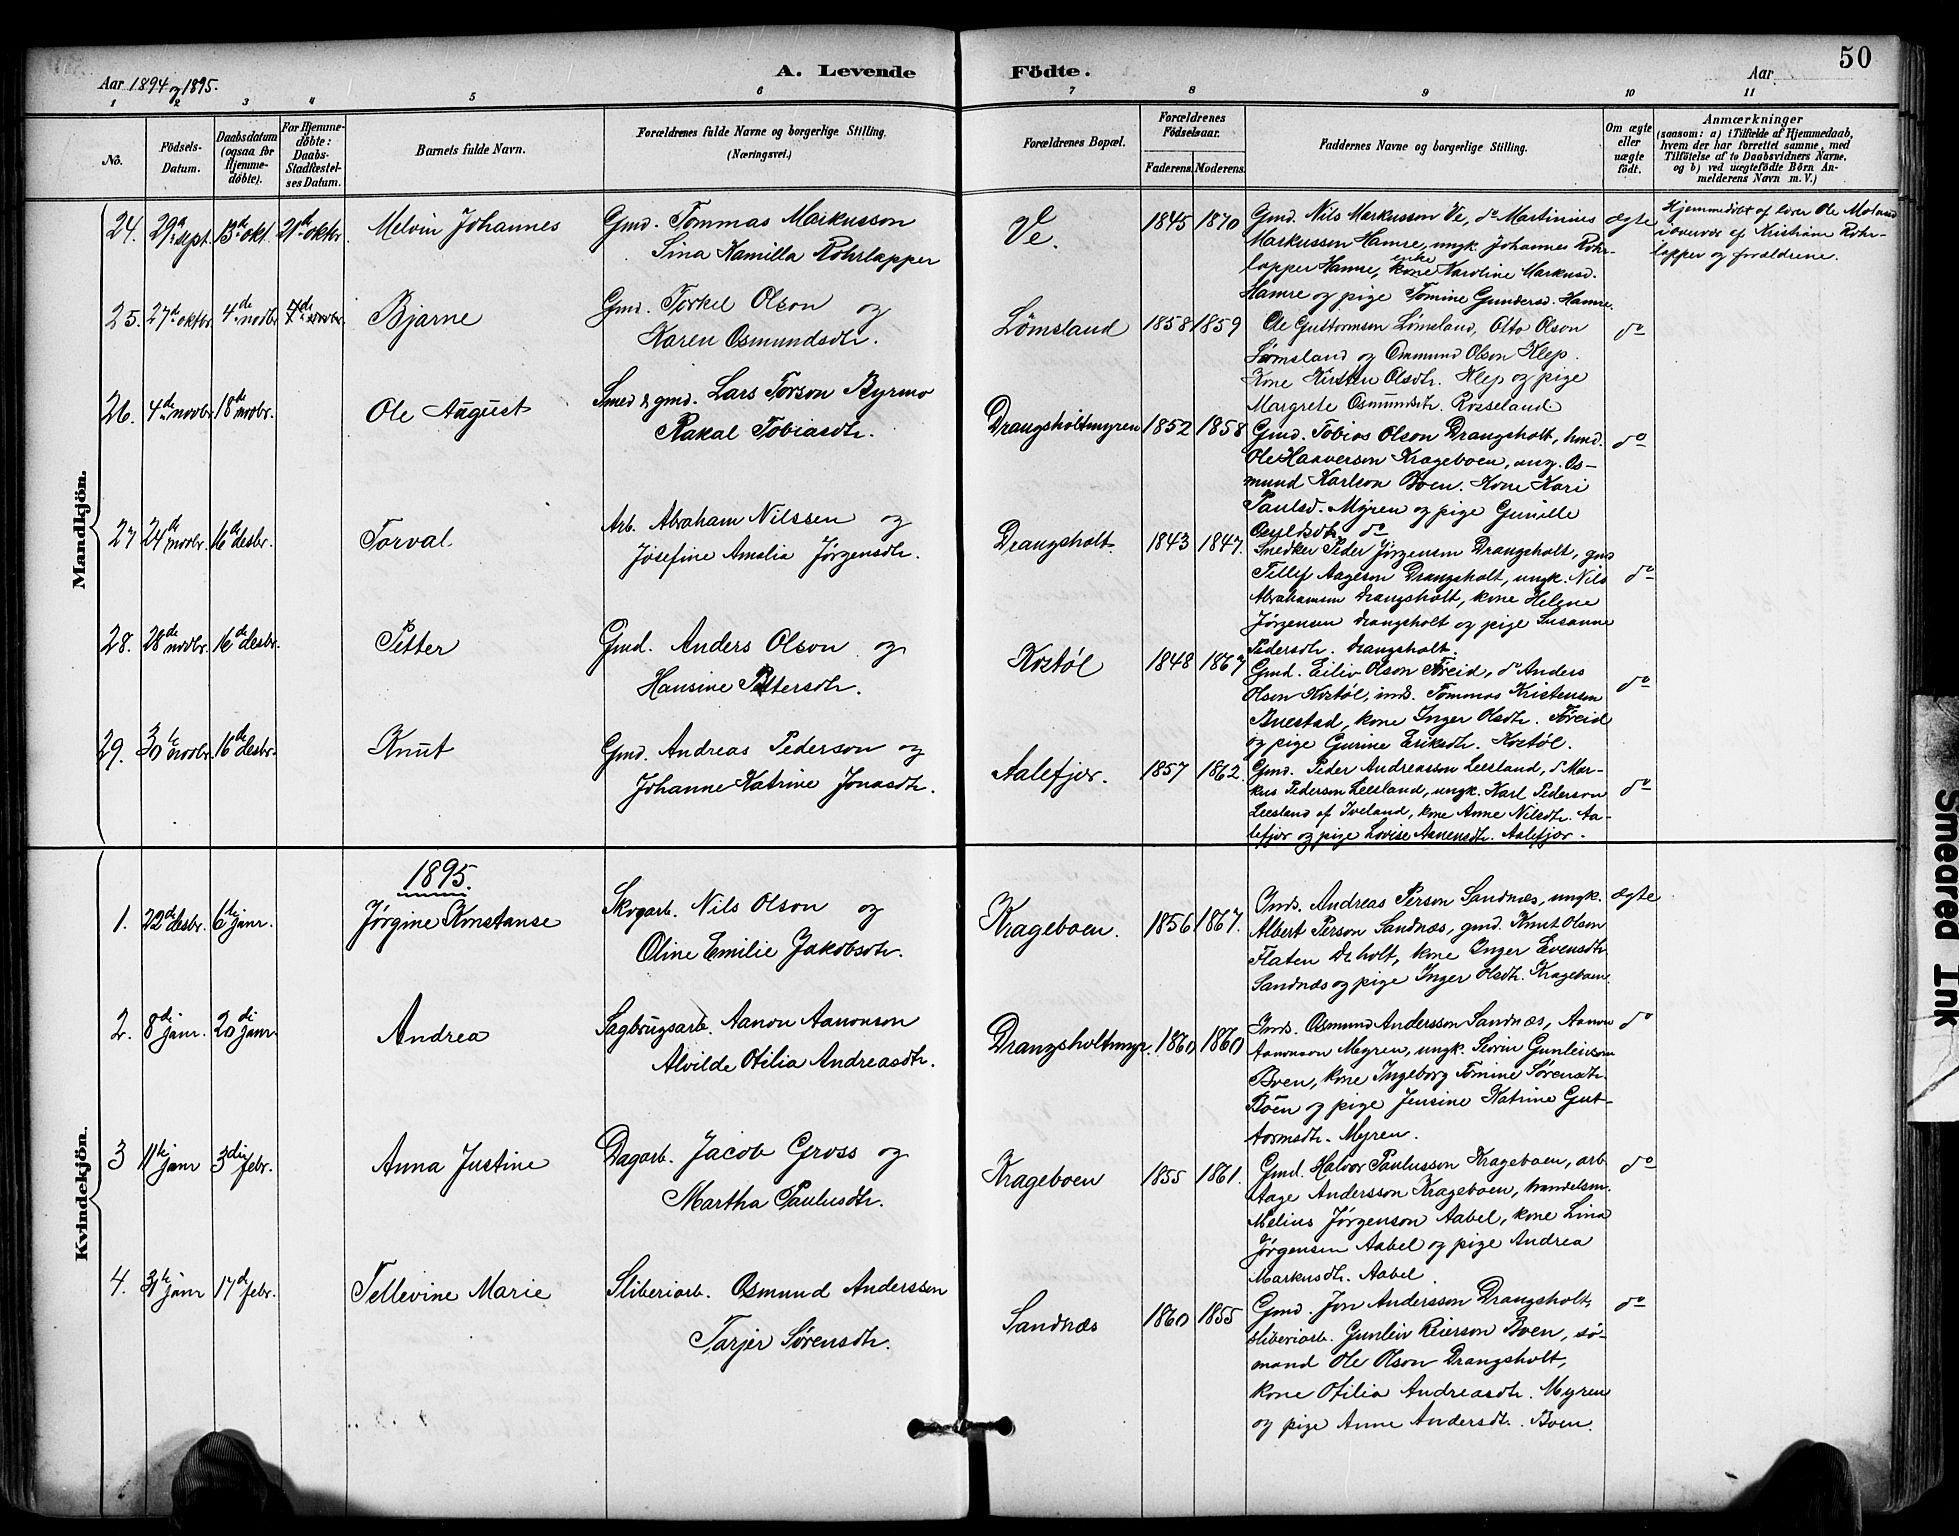 50
Aar 1894 og 1895.
A. Levende Födte.
Aar
1 2 3 4 5 6 7 8 9 10 11
No.
Födsels-Datum.
Daabsdatum (ogsaa for Hjemme-döbte).
For Hjemme-döbte: Daabs-Stadfæstel-ses Datum.
Barnets fulde Navn.
Forældrenes fulde Navne og borgerlige Stilling.
(Næringsvei.)
Forældrenes Bopæl.
Forældrenes Födselsaar.
Faderens. Moderens.
Faddernes Navne og borgerlige Stilling.
Om ægte eller uægte födt.
Anmærkninger
(saasom: a) i Tilfælde af Hjemmedaab,
hvem der har forrettet samme, med
Tilföielse af to Daabsvidners Navne,
og b) ved uægtefödte Börn An-
melderens Navn m. V.)
Mandkjön.
24. 29de sept. 13de okt. 21de oktbr Melvin Johannes
Gmd. Tommas Markusson
Sina Kamilla Rohrlapper
Ve. 1845 1870
Gmd. Nils Markusson Ve, do Martinius
Markussen Hamre, ungk. Johannes Rohr-
lapper Hamre, enke kone Karoline Markusd.
Hamre og pige Tomine Gundersd. Hamre.
ægte
Hjemmedøbt af lærer Ole
i overvær af Kristiane Rohr-
lapper og forældrene.
25. 27de oktbr. 4de novbr 7de novbr. Bjarne
Gmd. Torkel Olson og
Karen Osmundsdtr.
Lømsland 1858 1859
Ole Guttormsen Lømsland, Otto Olson
Lømsland og Ommund Olson Klep.
Kone Kirsten Olsdtr. Klep og pige
Margrete Osmundsdtr. Rosseland.
do
26. 4de novbr. 18de novbr. Ole August
Smed & gmd. Lars Torson Byrmo
Rakal Tobiasdtr.
Drangsholtmyren 1852 1858
Gmd. Tobias Olson Drangsholt, hmd.
Ole Haaverson Krageboen, ung. Os-
mund Karlson Boen. Kone Kari
Paulsd. Myren og pige Gunille
Osuldsdtr. do
do
27 24de novbr. 16de desbr. Torval
Arb. Abraham Nilssen og
Josefine Amalia Jørgensdtr.
Drangsholt 1843 1847.
Snedker Peder Jørgensen Drangsholt, gmd
Tellef Aageson Drangsholt, ungk. Nils
Abrahamsen Drangsholt, kone Helene
Jørgensen Drangsholt og pige Susanne
Pedersdtr. Drangsholt.
do
28. 28de novbr. 16de desbr. Petter
Gmd. Anders Olson og
Hansine Pettersdtr.
Kostøl 1848 1867
Gmd. Eiliv Olson Føreid, do Anders
Olson Kostøl, inds. Tommas Kristensen
Buestad, kone Inger Olsdtr. Føreid
og pige Gurine Eriksdtr. Kostøl.
do
29. 30te novbr. 16de desbr. Knut
Gmd. Andreas Pederson og
Johanne Katrine Jonasdtr.
Aalefjær. 1857 1862.
Gmd. Peder Andreassen Leesland, do Mar-
kus Pederson Leesland, ungk. Karl Pederson
Leesland af Iveland, kone Anne Nilsdtr. Aa-
lefjær og pige Lovise Aanensdtr. Aalefjær.
do
Kvindekjön.
1895.
1. 22de desbr. 6te janr. Jørgine Konstanse
Skogarb. Nils Olson og
Oline Emilie Jakobsdtr.
Krageboen. 1856 1867.
Inds. Andreas Person Sandnæs, ungk.
Albert Person Sandnæs, gmd. Knut Olson
Flaten Drholt, kone Inger Evensdtr.
Sandnæs og pige Inger Olsdtr. Krageboen.
ægte
2. 8di janr. 20di janr Andrea
Sagbrugsarb. Aanon Aanonson
Alvilde Otilia Andreasdtr.
Drangsholtmyr. 1860 1860
Inds. Osmund Andersson Sandnæs, Aanon
Aanonson Myren, ungk. Severin Gunleivson
Boen, kone Ingeborg Tomine Sørensdtr.
Boen og pige Jensine Katrine Gut-
tormsdtr. Myren.
do
3 11te janr 3die febr. Anna Justine
Dagarb. Jacob Gross og
Martha Paulusdtr.
Krageboen 1855 1861.
Gmd. Halvor Paulusson Krageboen, arb
Aage Andersson Krageboen, handelsm.
Melius Jørgenson Aabel, kone Lina
Jørgensen Aabel og pige Andrea
Markusdtr. Aabel.
do
4. 31te janr 17de febr. Tellevine Marie
Sliberiarb. Osmund Anderssen
Tarjer Sørensdtr.
Sandnæs 1860 1855
Gmd. Jon Andersson Drangsholt,
sliberiarb. Gunleiv Reierson Boen, sø-
mand Ole Olson Drangsholt,
kone Otilia Andreasdtr. Myren
og pige Anne Andersdtr. Boen.
do
Smeared Ink